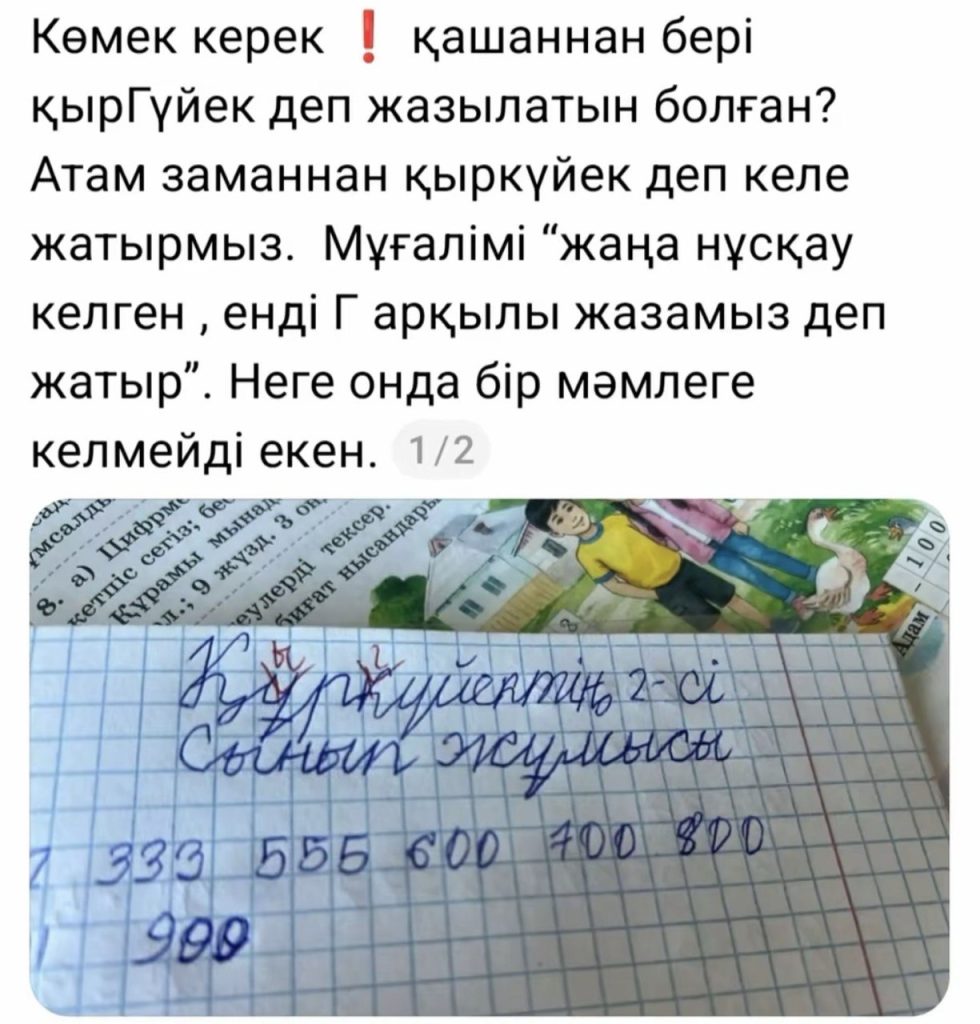 Көмек керек ❗ қашаннан бері
қырГүйек деп жазылатын болған?
Атам заманнан қыркүйек деп келе
жатырмыз. Мұғалімі “жаңа нұсқау
келген , енді Г арқылы жазамыз деп
жатыр”. Неге онда бір мәмлеге
келмейді екен. 1/2
8. а) Цифрм
кетпіс сегіз; бе
Құрамы мынад
9 жүзд. 3 он
еулерді тексер.
биғат нысандары
- 100
Адам
ы г
Құркүйектің 2-сі
Сынып жұмысы
333 555 600 700 800
999